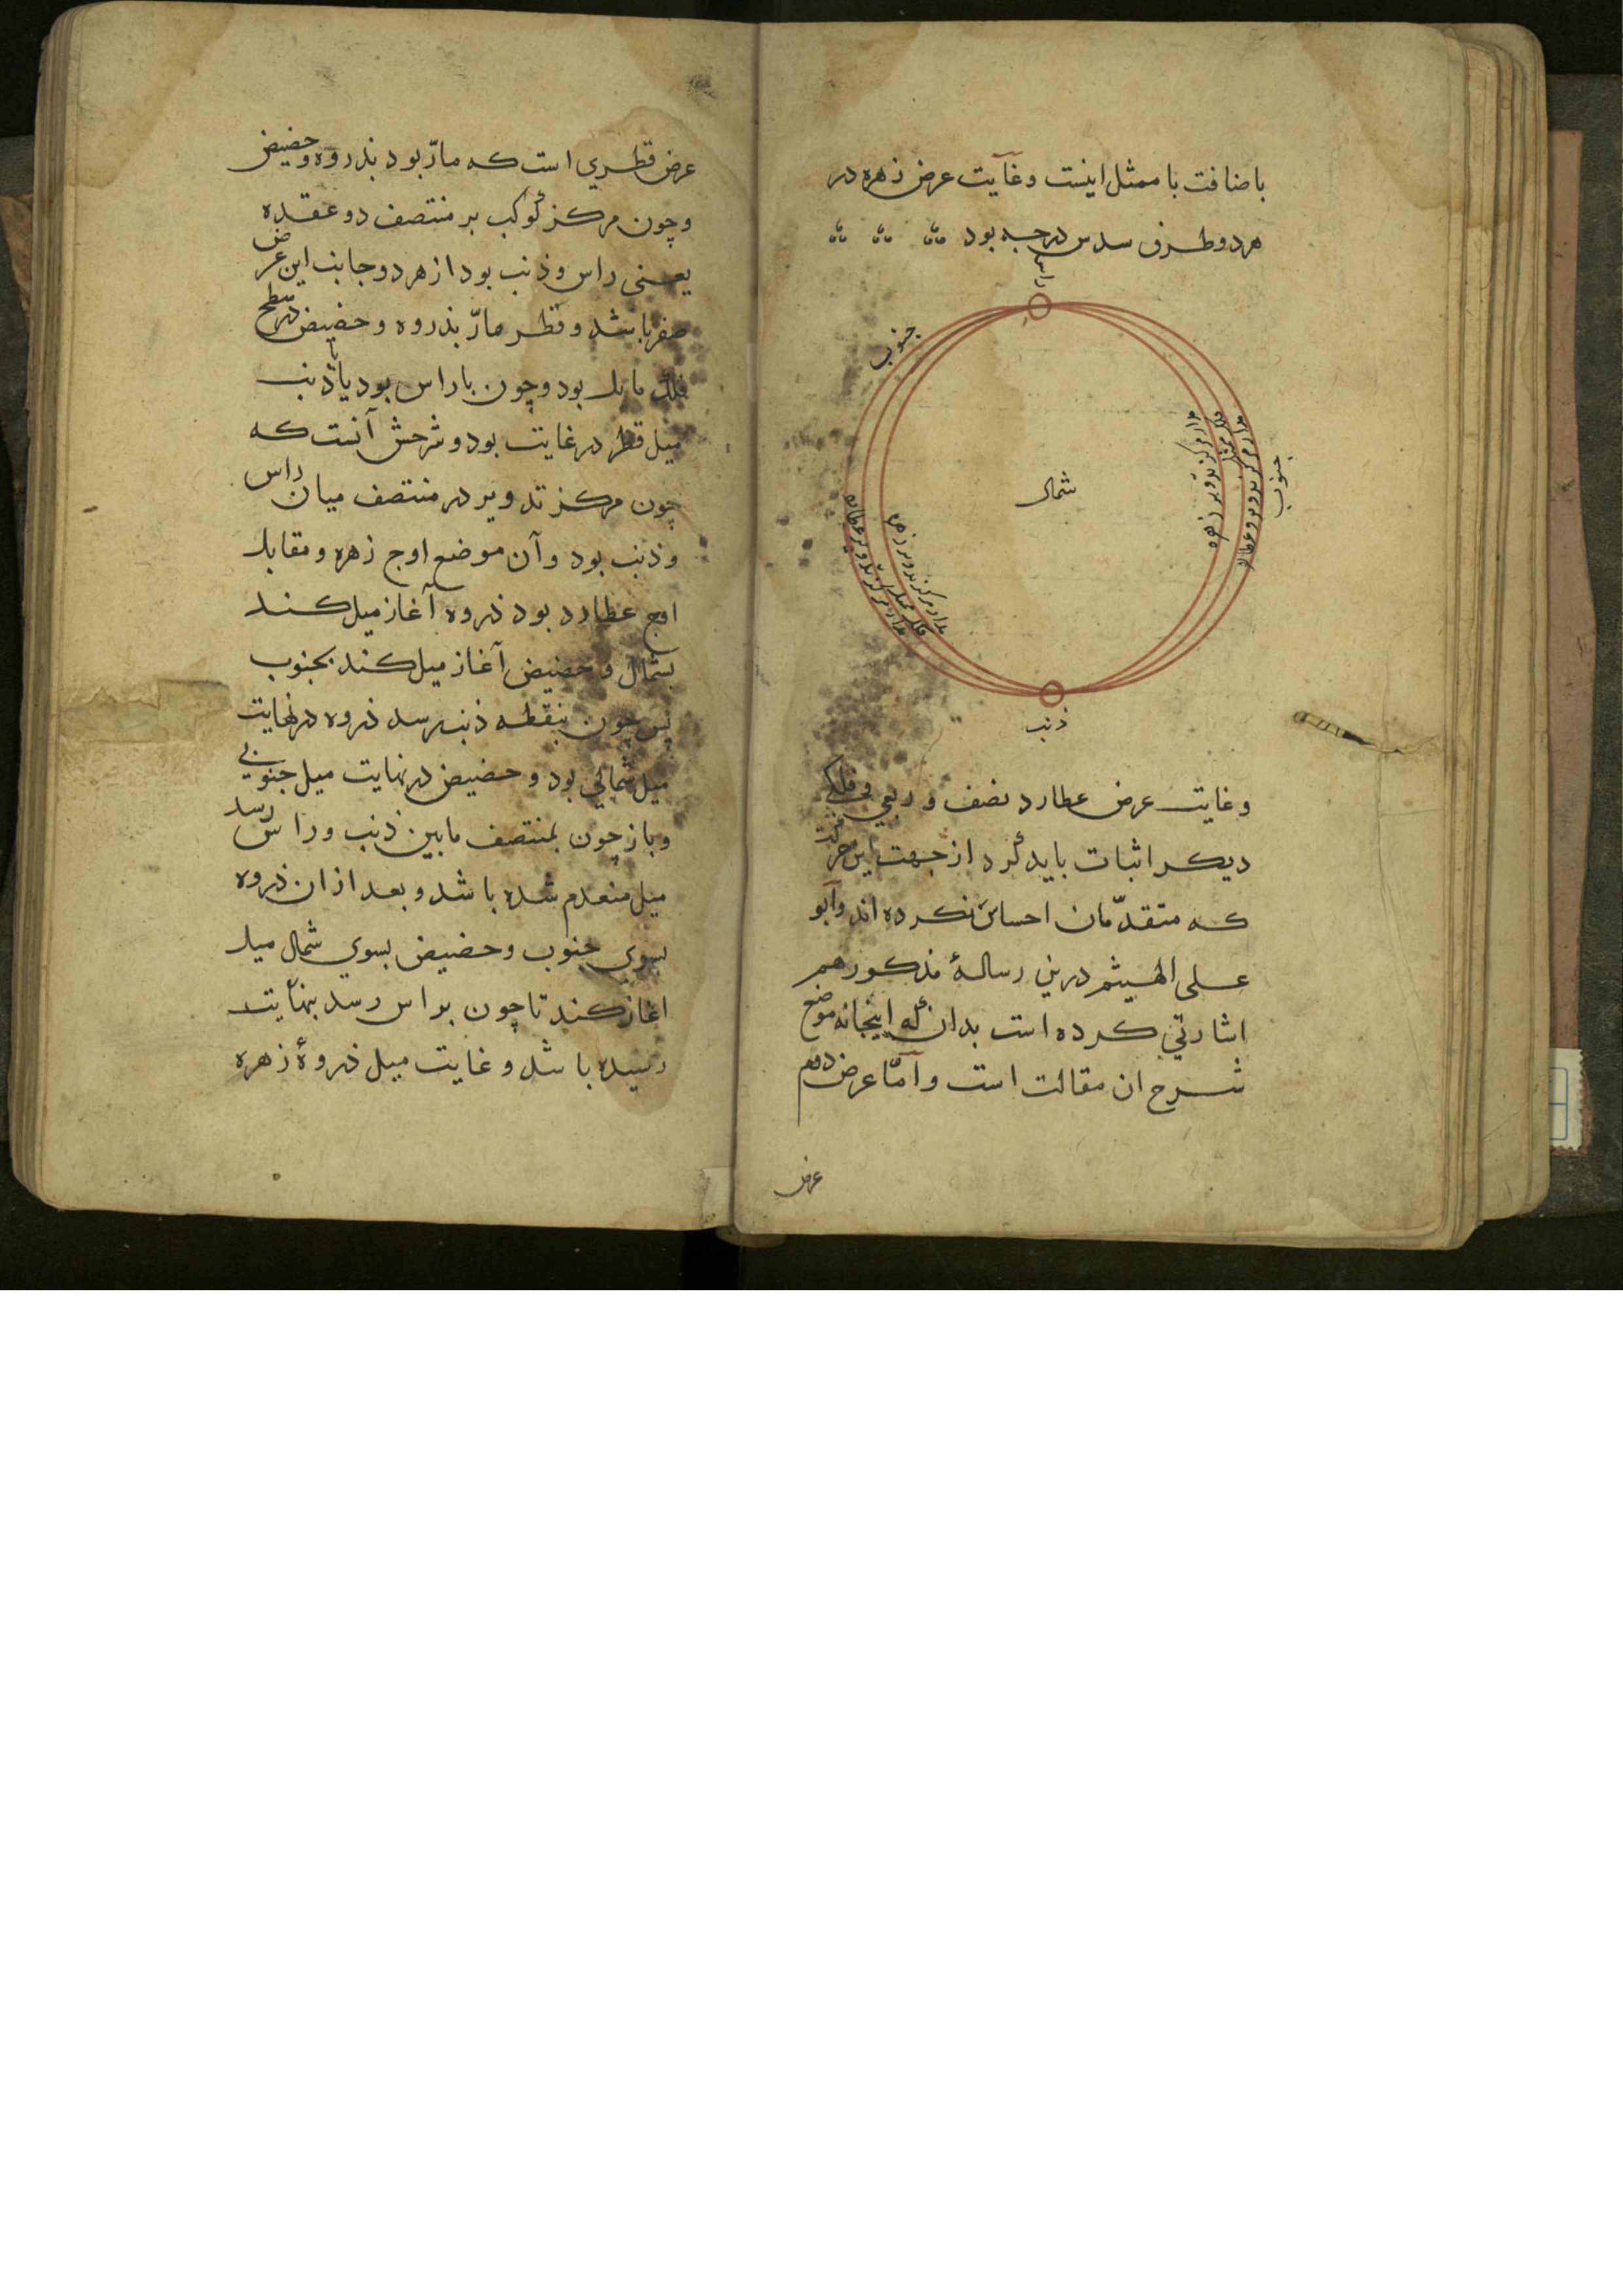 باضافت با ممثل اینست وغایت عرض زهره در
هر دو طرف سدس درجه بود
راس
جنوب
شمال
جنوب
مدار مرکز تدویر زهره
فلک ممثل
مدار مرکز تدویر عطارد
مدار مرکز تدویر زهره
فلک ممثل
مدار مرکز تدویر عطارد
ذنب
وغایت عرض عطارد نصف و ربعی و فلکی
دیکر اثبات باید کرد از جهت این حرکت
که متقدّمان احساس نکرده اند وابو
علی الهیثم درین رسالهٔ مذکور هم
اشارتی کرده است بدان که اینجا نه موضع
شرح ان مقالت است و امّا عرض دوم
عرض
عرض قطری است که مارّ بود بذروه وحضیض
وچون مرکز کوکب بر منتصف دو عقده
یعنی راس وذنب بود از هر دو جانب این عرض
صفر باشد و قطر مارّ بذروه و حضیض در سطح
فلک مایل بود وچون با راس بود یا با ذنب
میل قطر در غایت بود و شرحش آنست که
چون مرکز تدویر در منتصف میان راس
وذنب بود وآن موضع اوج زهره ومقابل
اوج عطارد بود ذروه آغاز میل کند
بشمال و حضیض آغاز میل کند بجنوب
پس چون بنقطه ذنب رسد ذروه در نهایت
میل شمالی بود و حضیض در نهایت میل جنوبی
وباز چون بمنتصف مابین ذنب وراس رسد
میل منعدم شده باشد و بعد از ان ذروه
بسوی جنوب وحضیض بسوی شمال میل
اغاز کند تا چون براس رسد بنهایت
رسیده باشد و غایت میل ذروهٔ زهره